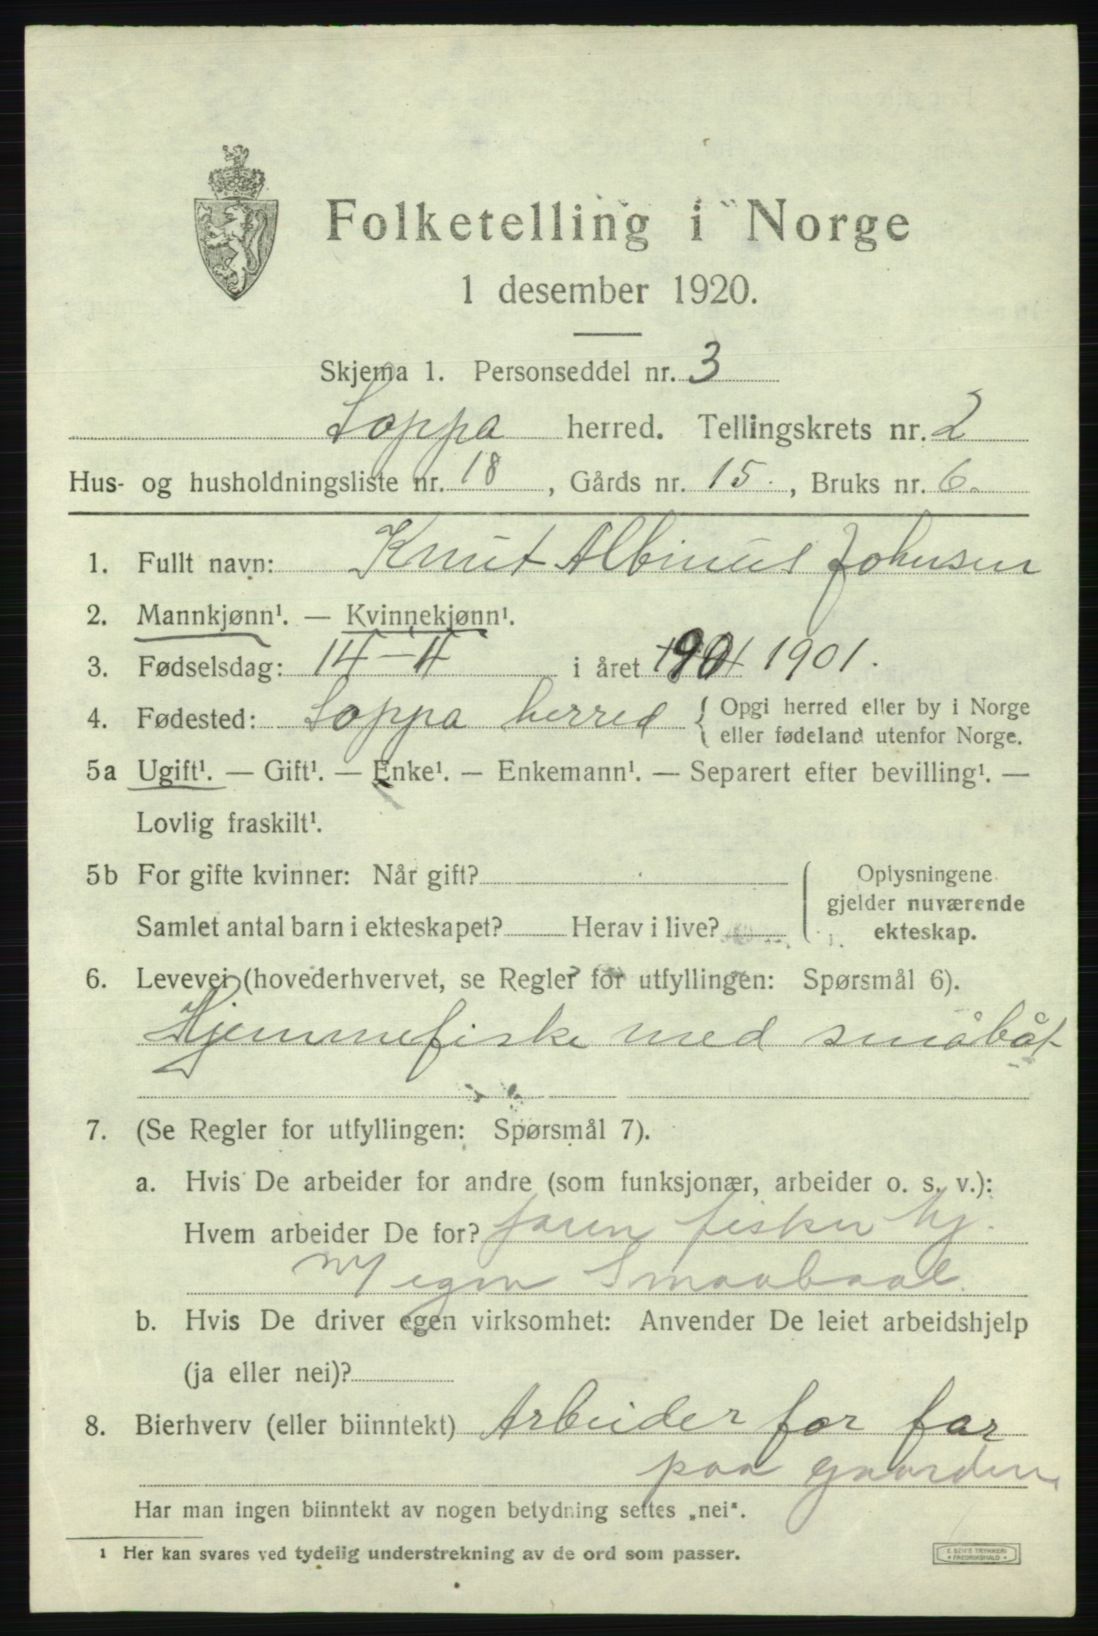 Folketelling i Norge
1 desember 1920.
Skjema 1. Personseddel nr. 3
Loppa herred. Tellingskrets nr. 2
Hus- og husholdningsliste nr. 18, Gårds nr. 15., Bruks nr. 6.
1. Fullt navn: Knut Albinus Johnsen
2. Mannkjønn¹. — Kvinnekjønn¹.
3. Fødselsdag: 14 - 4 i året 1901.
4. Fødested: Loppa herred { Opgi herred eller by i Norge
eller fødeland utenfor Norge.
5a Ugift¹. — Gift¹. — Enke¹. — Enkemann¹. — Separert efter bevilling¹. —
Lovlig fraskilt¹.
5b For gifte kvinner: Når gift?
Samlet antal barn i ekteskapet? Herav i live?
Oplysningene
gjelder nuværende
ekteskap.
6. Levevei (hovederhvervet, se Regler for utfyllingen: Spørsmål 6).
Hjemmefiske med småbåt
7. (Se Regler for utfyllingen: Spørsmål 7).
a. Hvis De arbeider for andre (som funksjonær, arbeider o. s. v.):
Hvem arbeider De for? faren fisker hj.
M egen Smaabaat
b. Hvis De driver egen virksomhet: Anvender De leiet arbeidshjelp
(ja eller nei)?
8. Bierhverv (eller biinntekt) Arbeider for far
paa gaarden
Har man ingen biinntekt av nogen betydning settes „nei“.
¹ Her kan svares ved tydelig understrekning av de ord som passer.